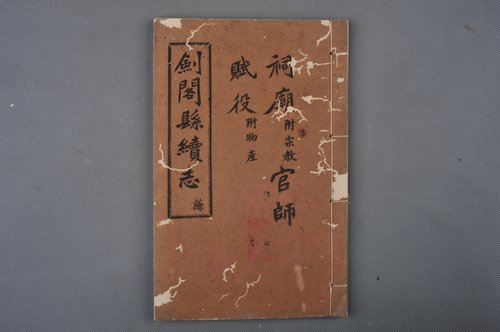 祠廟附宗教官師
賦役附物產
劍閣縣續志 絲